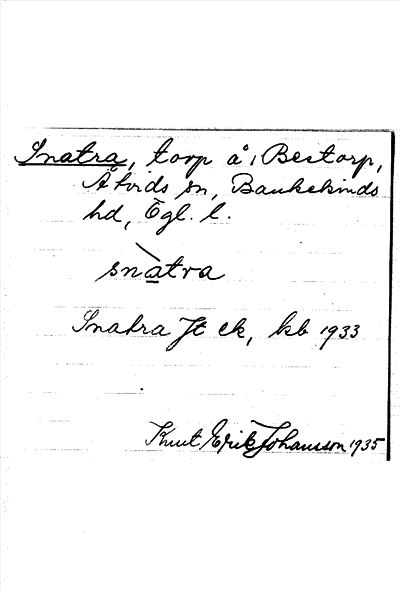 Snatra, torp å, Bestorp,
Åtvids sn, Bankekinds
hd, Ögl. l.
snàtra
Snatra Jt ek, kb 1933
Knut Erik Johansson 1935